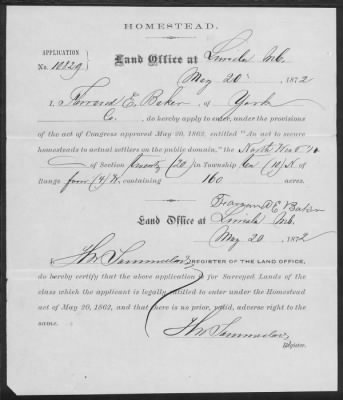 HOMESTEAD.
APPLICATION
No. 10829
Land Office at Lincoln Neb.
May 20 1872
I, E. Baker, of York
Co. do hereby apply to enter, under the provisions
of the act of Congress approved May 20, 1862, entitled "An act to secure
homesteads to actual settlers on the public domain," the North West ¼
of Section twenty (20) in Township ten (10) N. of
Range four (4) W. containing 160 acres.
E Baker
Land Office at Lincoln Neb.
May 20 1872
I, REGISTER OF THE LAND OFFICE,
do hereby certify that the above application is for Surveyed Lands of the
class which the applicant is legally entitled to enter under the Homestead
act of May 20, 1862, and that there is no prior, valid, adverse right to the
same.
Register.